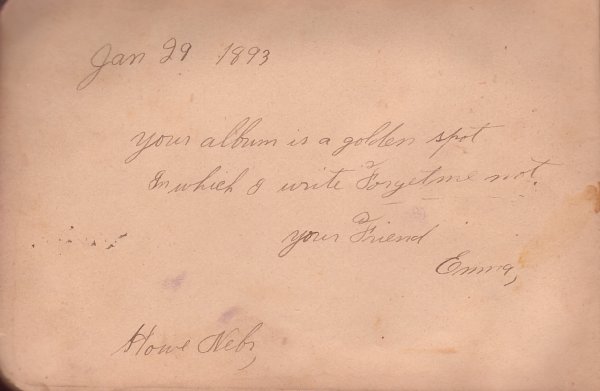 Jan 29 1893
your album is a golden spot
In which I write Forgetme not.
your Friend
Emma,
Howe Nebr,